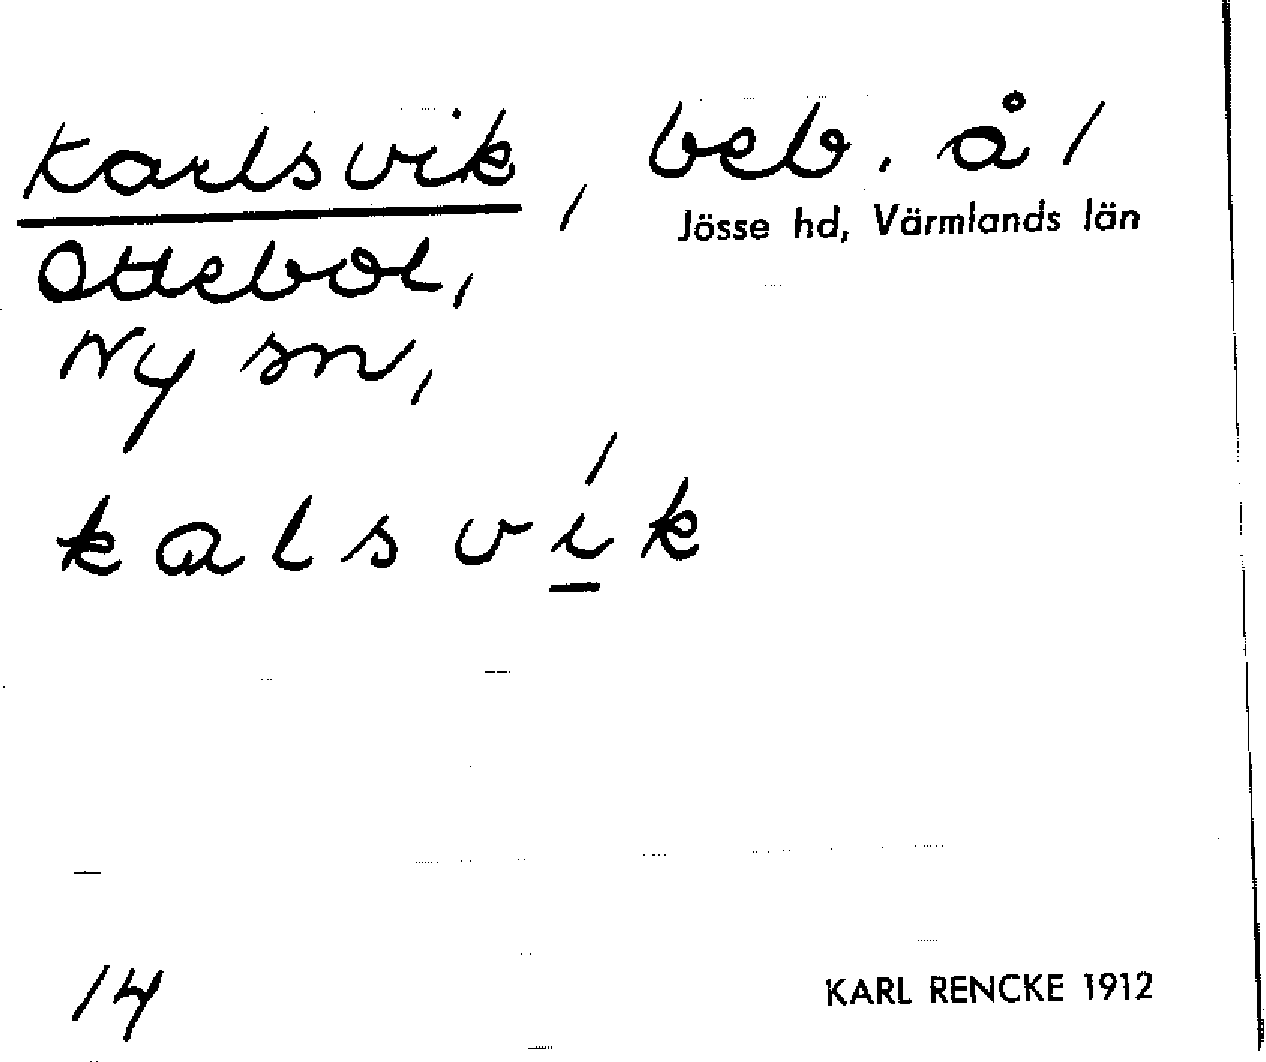 Karlsvik, beb. å /
Jösse hd, Värmlands län
Ottebol,
Ny sn,
kalsvík
14
KARL RENCKE 1912